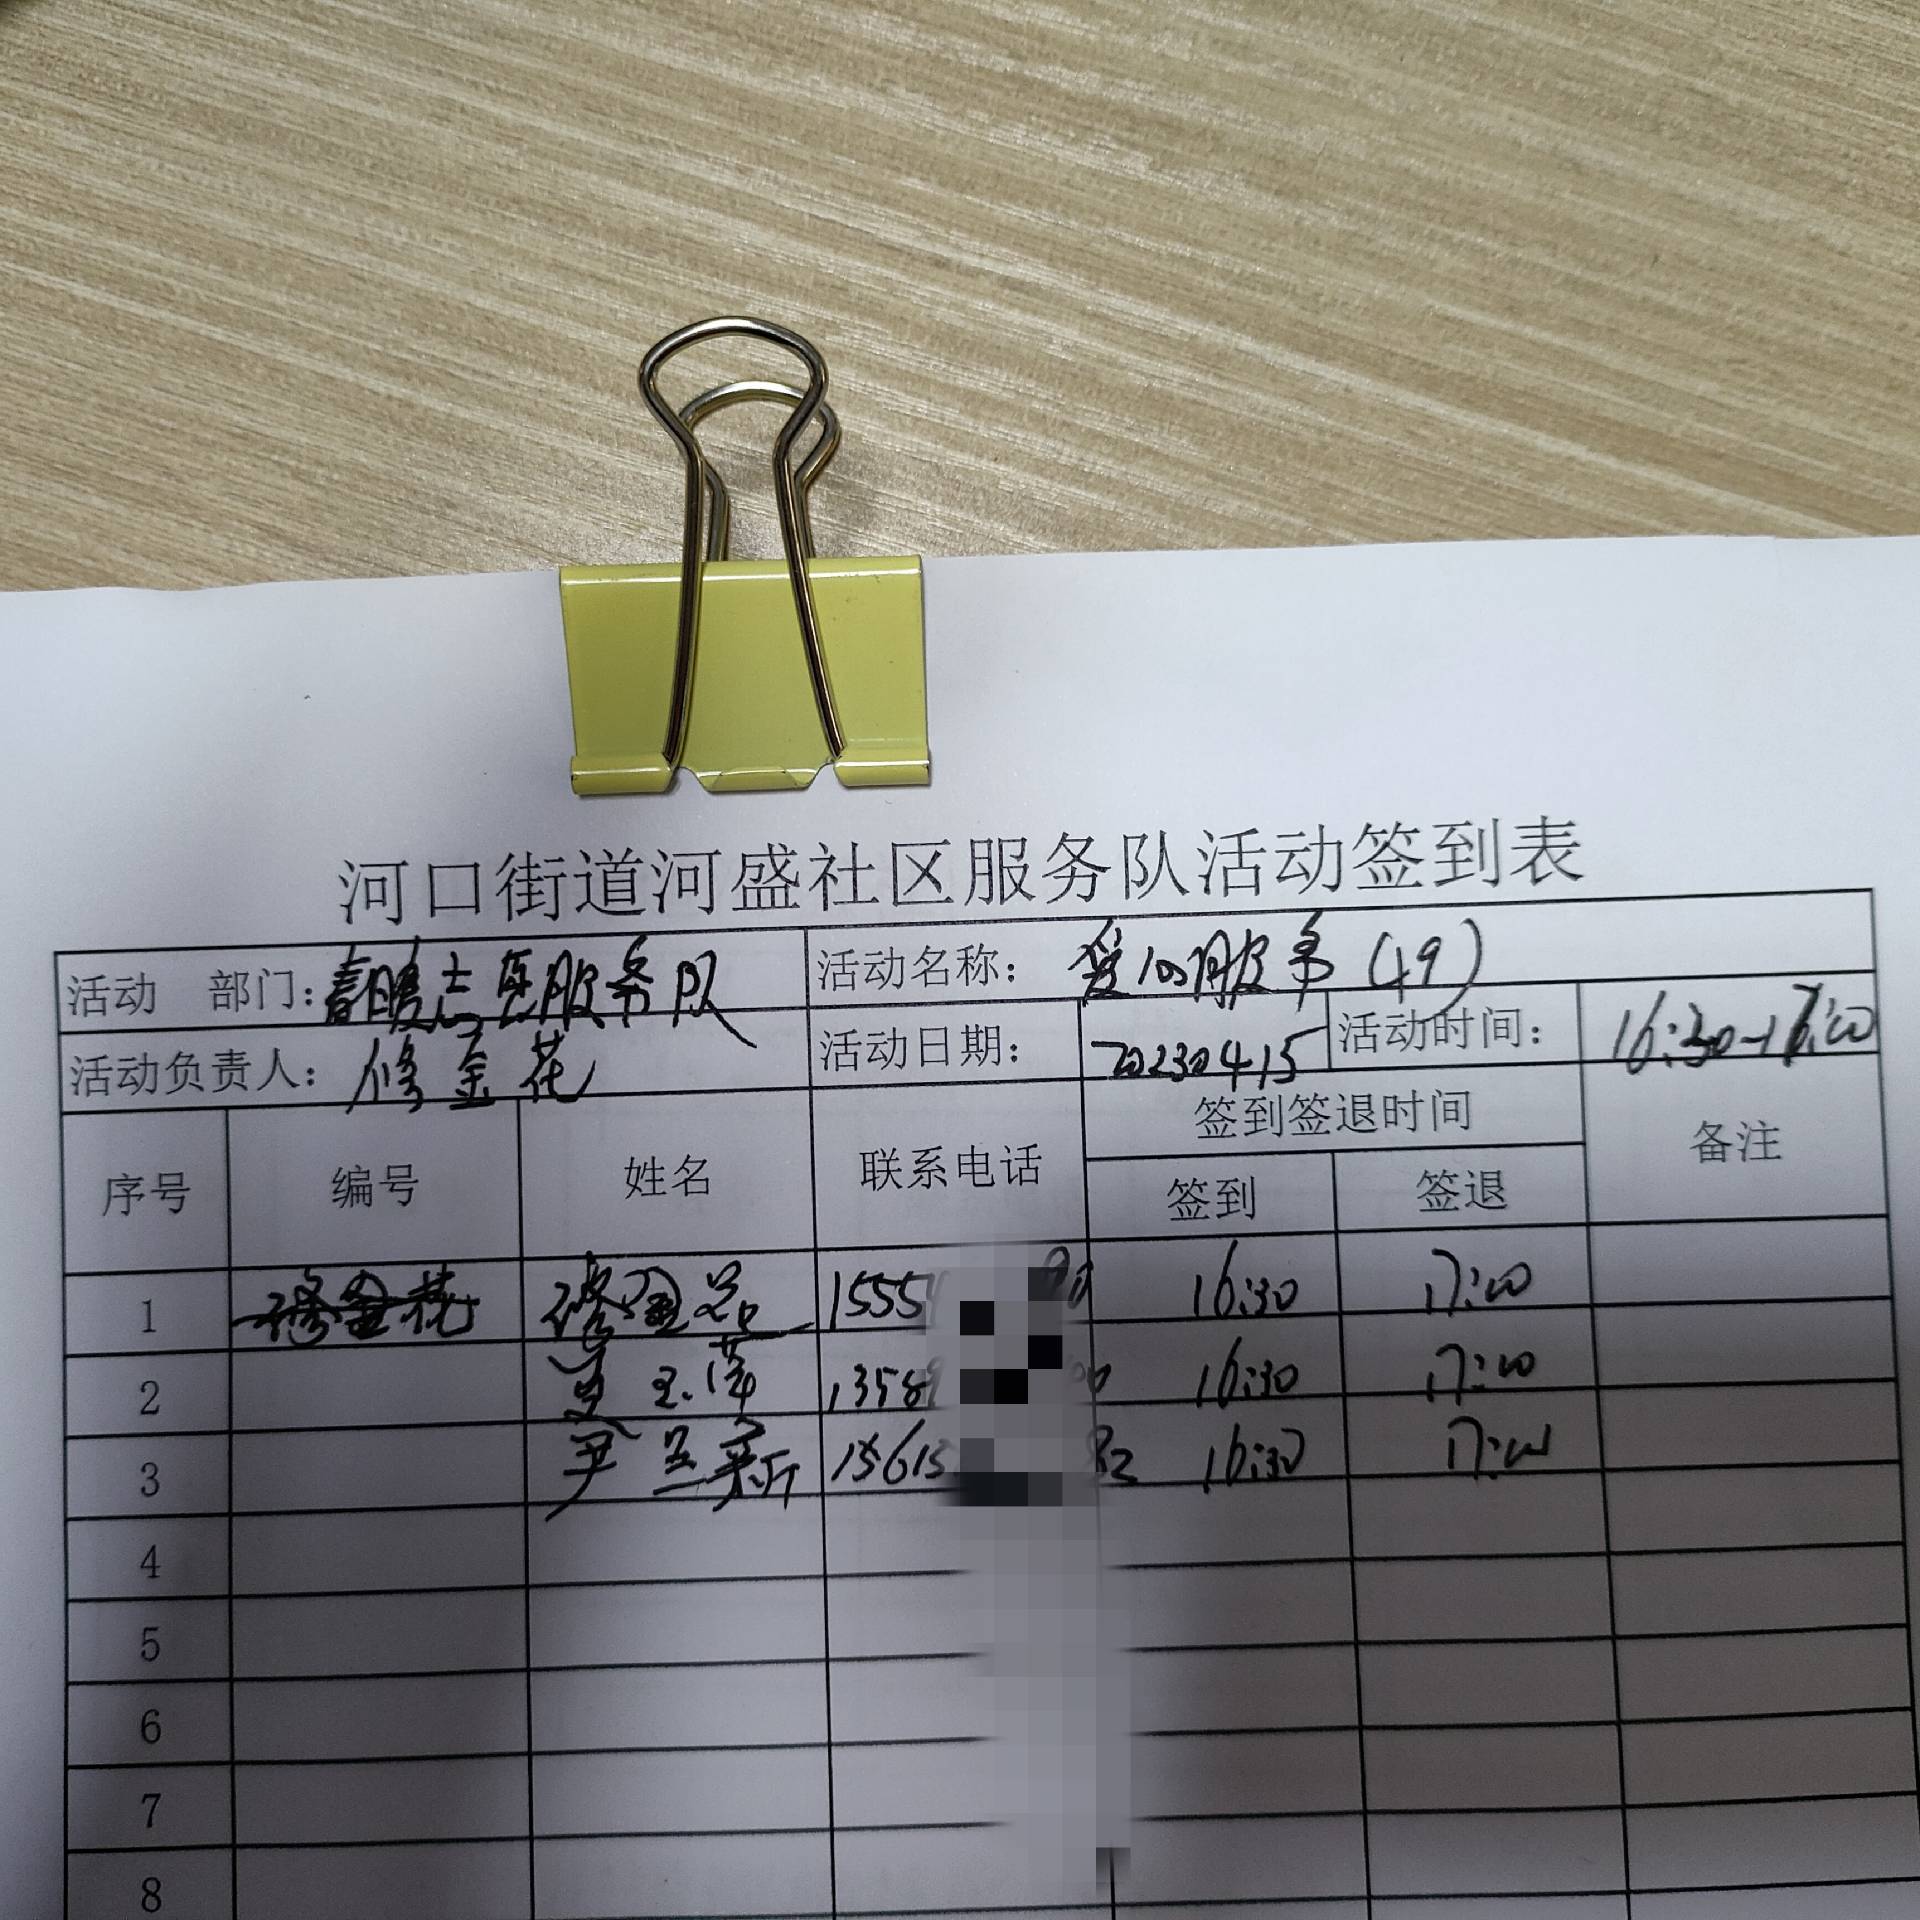 河口街道河盛社区服务队活动签到表
活动 部门：春暖志愿服务队 活动名称： (49)
活动负责人：修金花 活动日期： 20230415 活动时间： 16:30-17:00
序号 编号 姓名 联系电话 签到签退时间 备注
签到 签退
1 修金花 1555 16:30 17:00
2 1358 16:30 17:00
3 尹兰新 1561 16:30 17:00
4
5
6
7
8